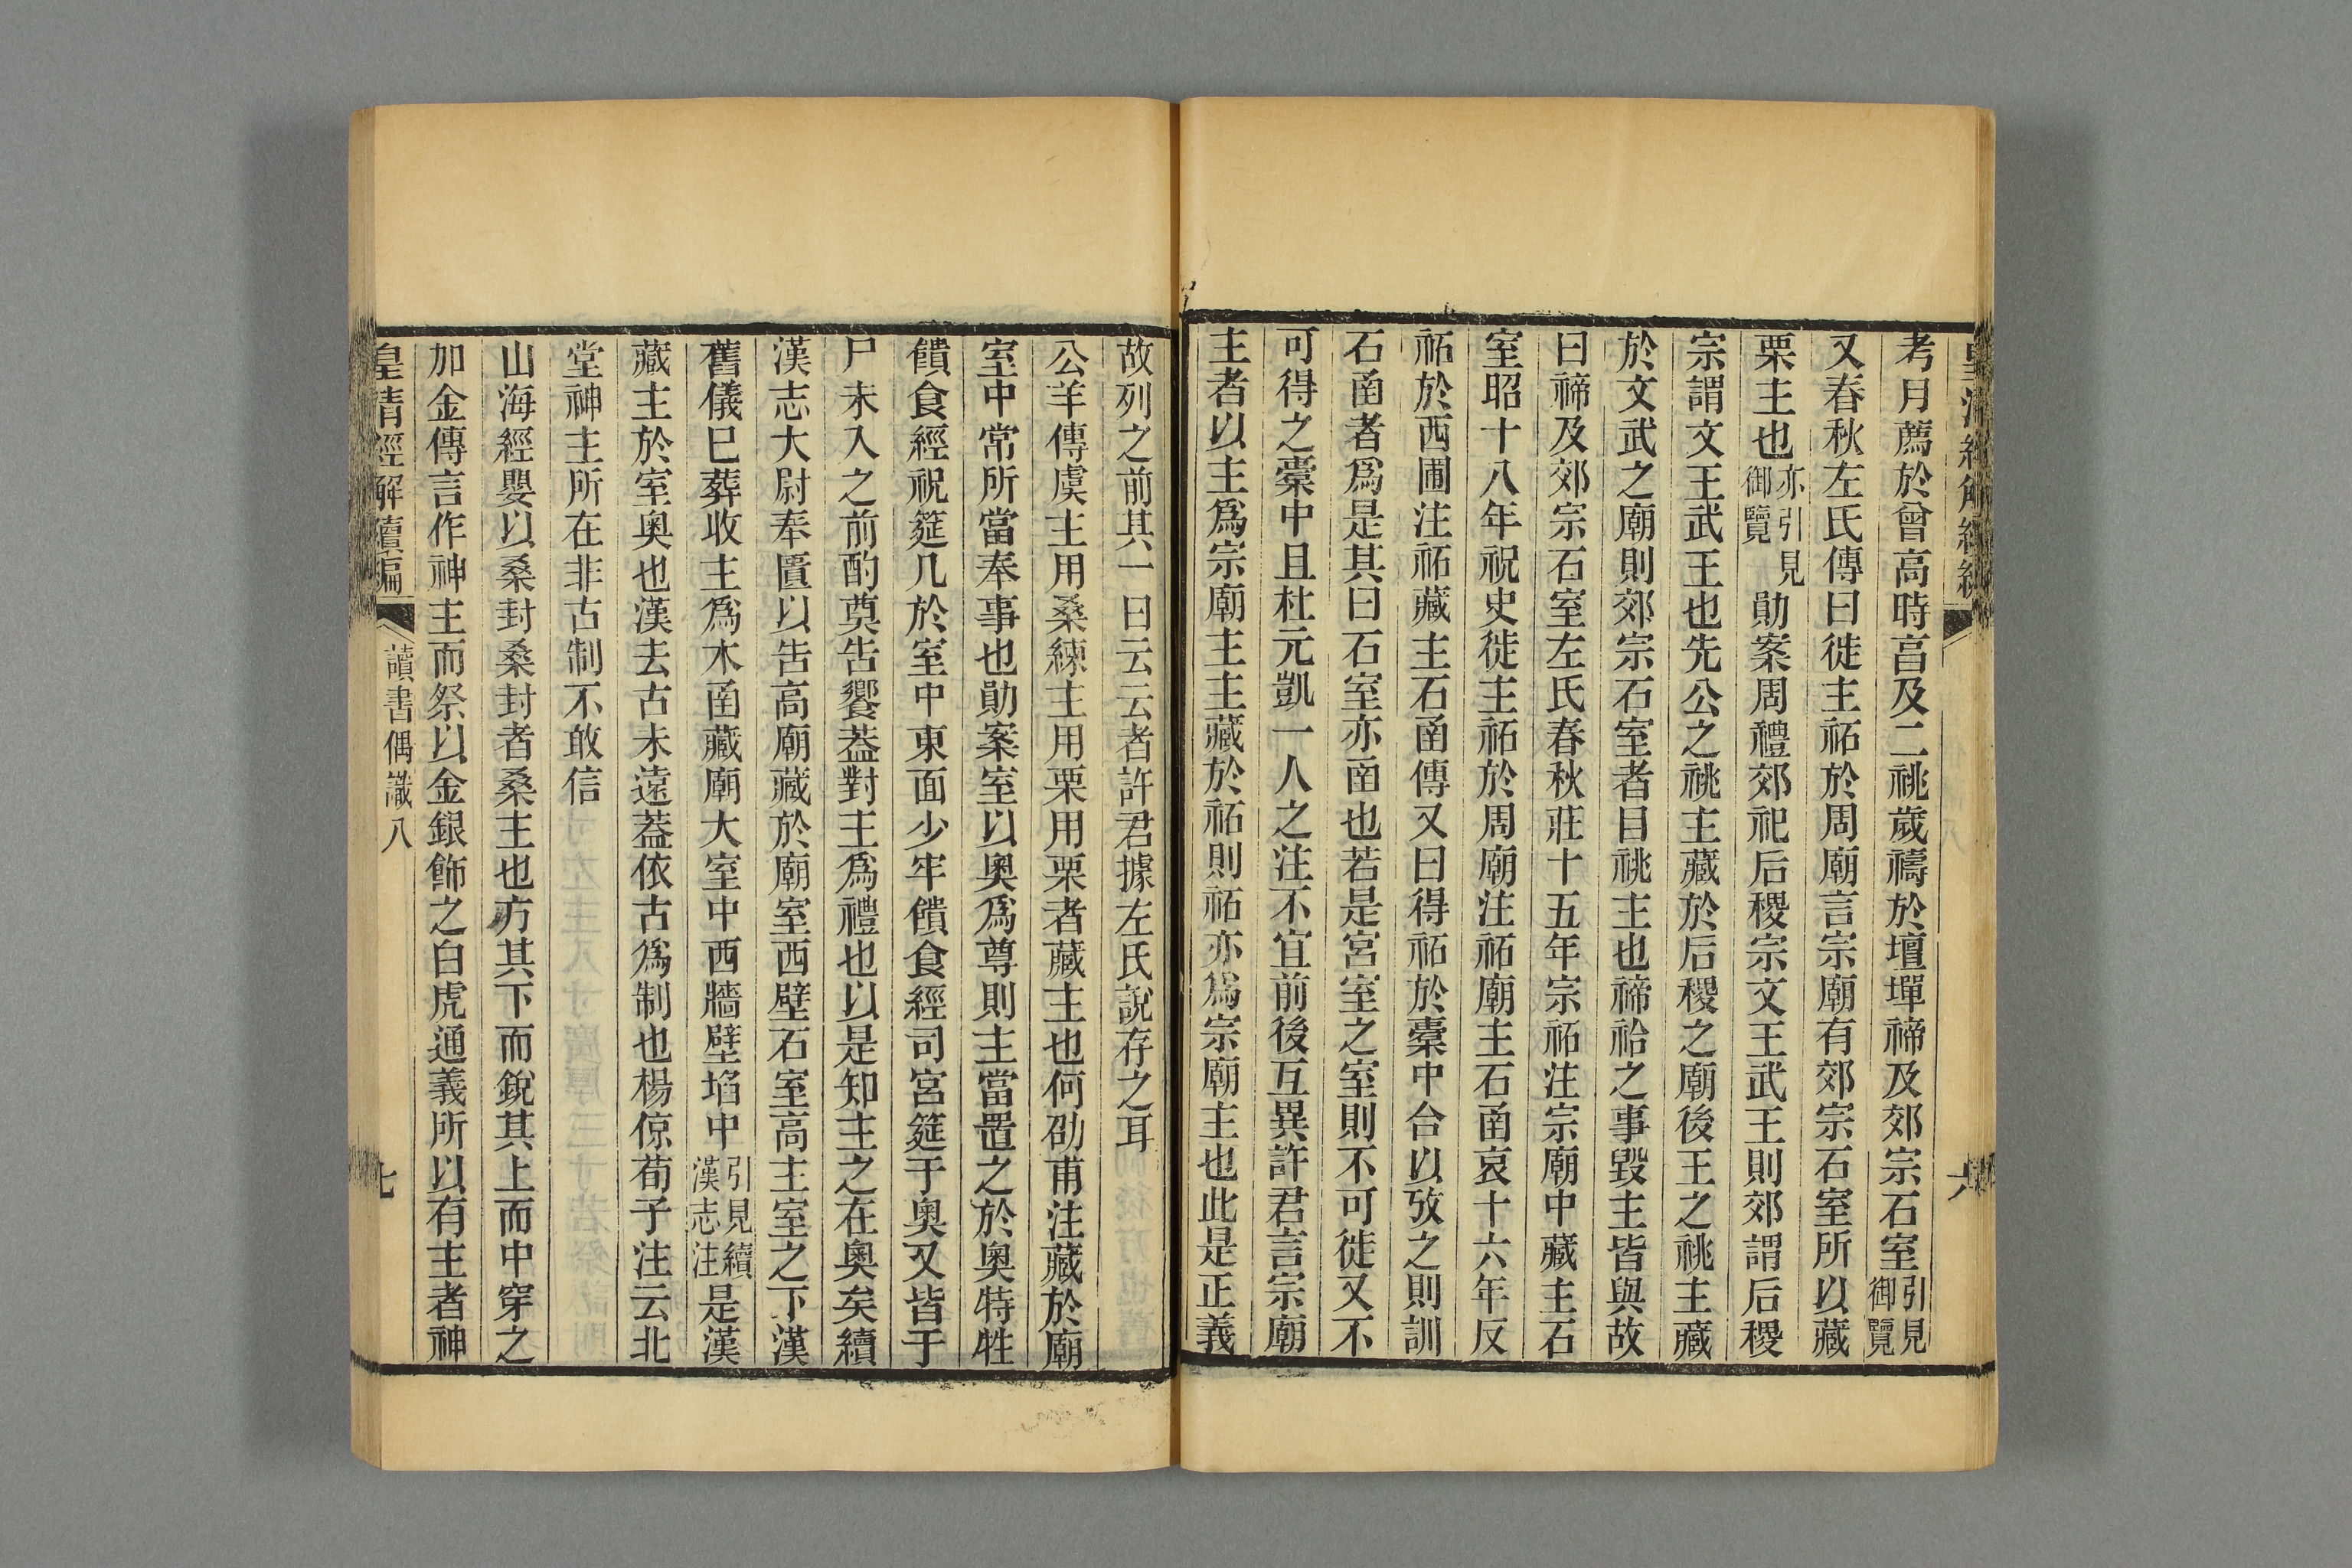 考月薦於曾高時亯及二祧歲禱於壇墠禘及郊宗石室引見御覽
又春秋左氏傳曰徙主祏於周廟言宗廟有郊宗石室所以藏
栗主也亦引見御覽勛案周禮郊祀后稷宗文王武王則郊謂后稷
宗謂文王武王也先公之祧主藏於后稷之廟後王之祧主藏
於文武之廟則郊宗石室者目祧主也禘祫之事毀主皆與故
曰禘及郊宗石室左氏春秋莊十五年宗祏注宗廟中藏主石
室昭十八年祝史徙主祏於周廟注祏廟主石函哀十六年反
祏於西圃注祏藏主石函傳又曰得祏於橐中合以攷之則訓
石函者爲是其曰石室亦函也若是宮室之室則不可徙又不
可得之橐中且杜元凱一人之注不宜前後互異許君言宗廟
主者以主爲宗廟主主藏於祏則祏亦爲宗廟主也此是正義
故列之前其一曰云云者許君據左氏說存之耳
公羊傳虞主用桑練主用栗用栗者藏主也何劭甫注藏於廟
室中常所當奉事也勛案室以奧爲尊則主當置之於奧特牲
饋食經祝筵几於室中東面少牢饋食經司宮筵于奧又皆于
尸未入之前酌奠告饗葢對主爲禮也以是知主之在奧矣續
漢志大尉奉匵以告高廟藏於廟室西壁石室高主室之下漢
舊儀已葬收主爲木函藏廟大室中西牆壁埳中引見續漢志注是漢
藏主於室奧也漢去古未遠葢依古爲制也楊倞荀子注云北
堂神主所在非古制不敢信
山海經嬰以桑封桑封者桑主也方其下而銳其上而中穿之
加金傳言作神主而祭以金銀飾之白虎通義所以有主者神
皇清經解續編 讀書偶識八 七